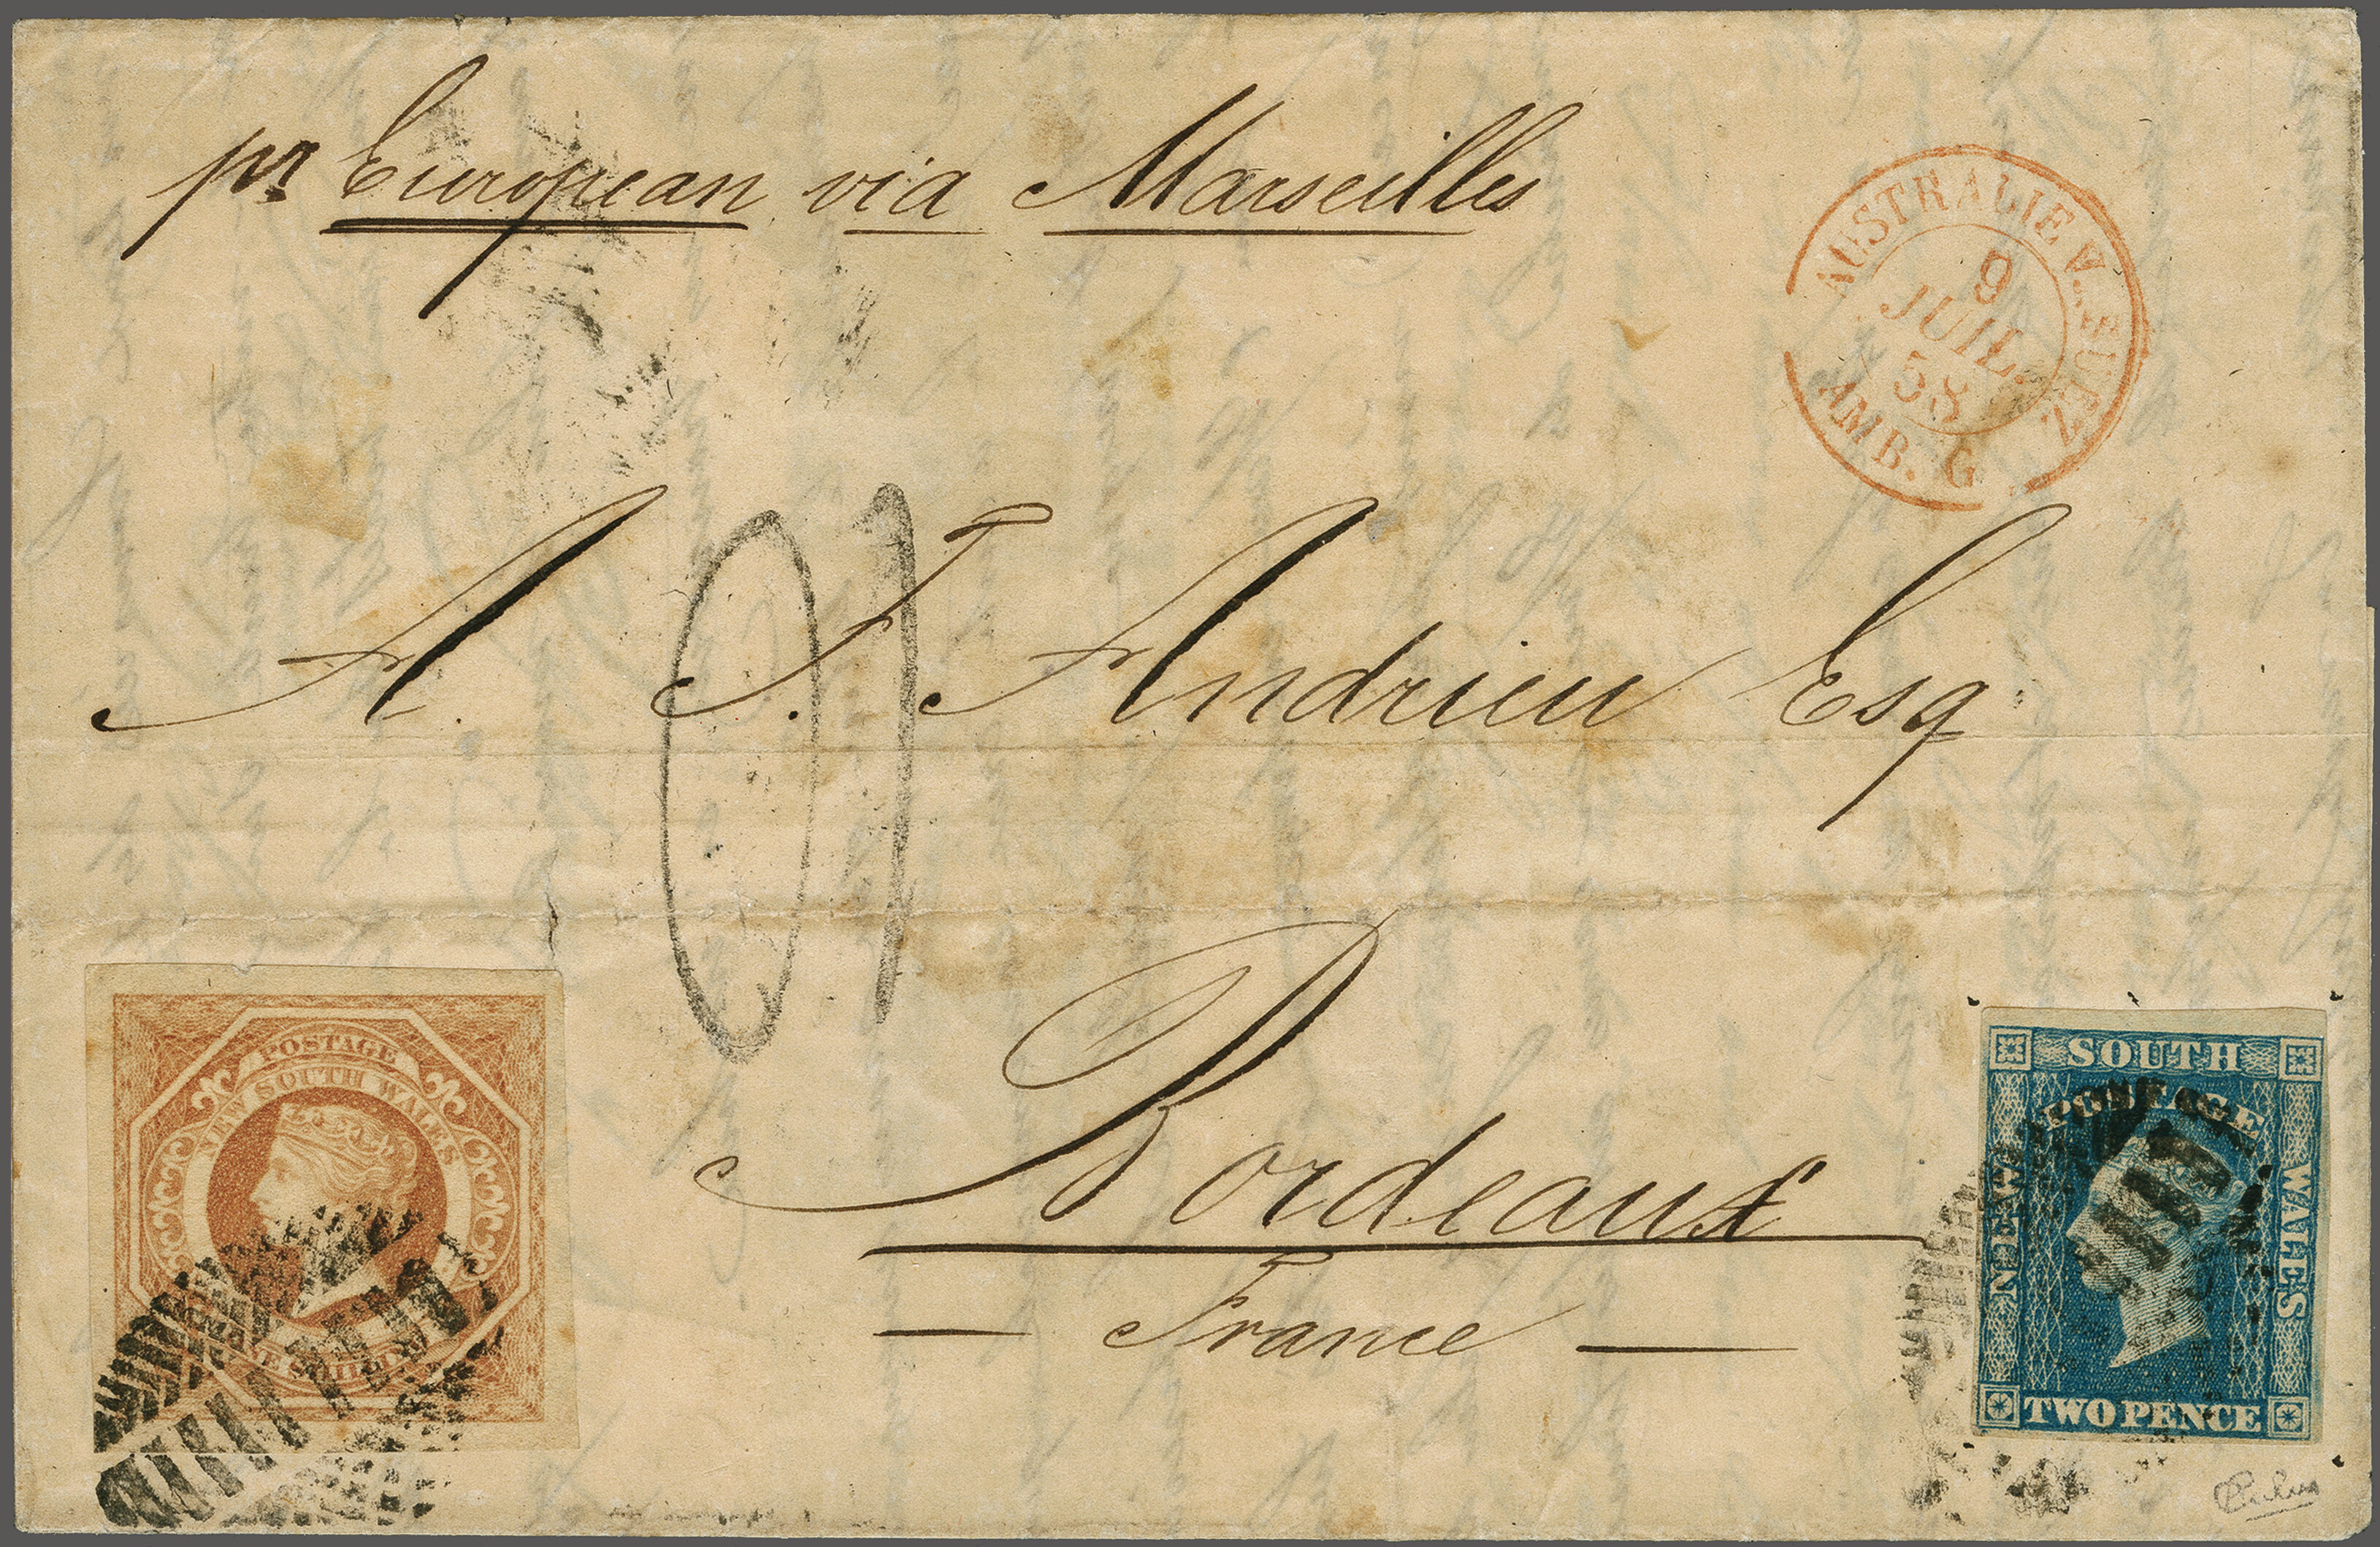 pr European via Marseilles
AUSTRALIE V. SUEZ
9
JUIL.
58
AMB. G
A. J. Andrieu Esq
Bordeaux
— France —
POSTAGE
NEW SOUTH WALES
ONE SHILLING
SOUTH
POSTAGE
NEW
WALES
TWO PENCE